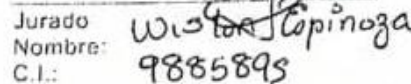 Jurado
Nombre: Wiston Espinoza
C.I.: 9885895